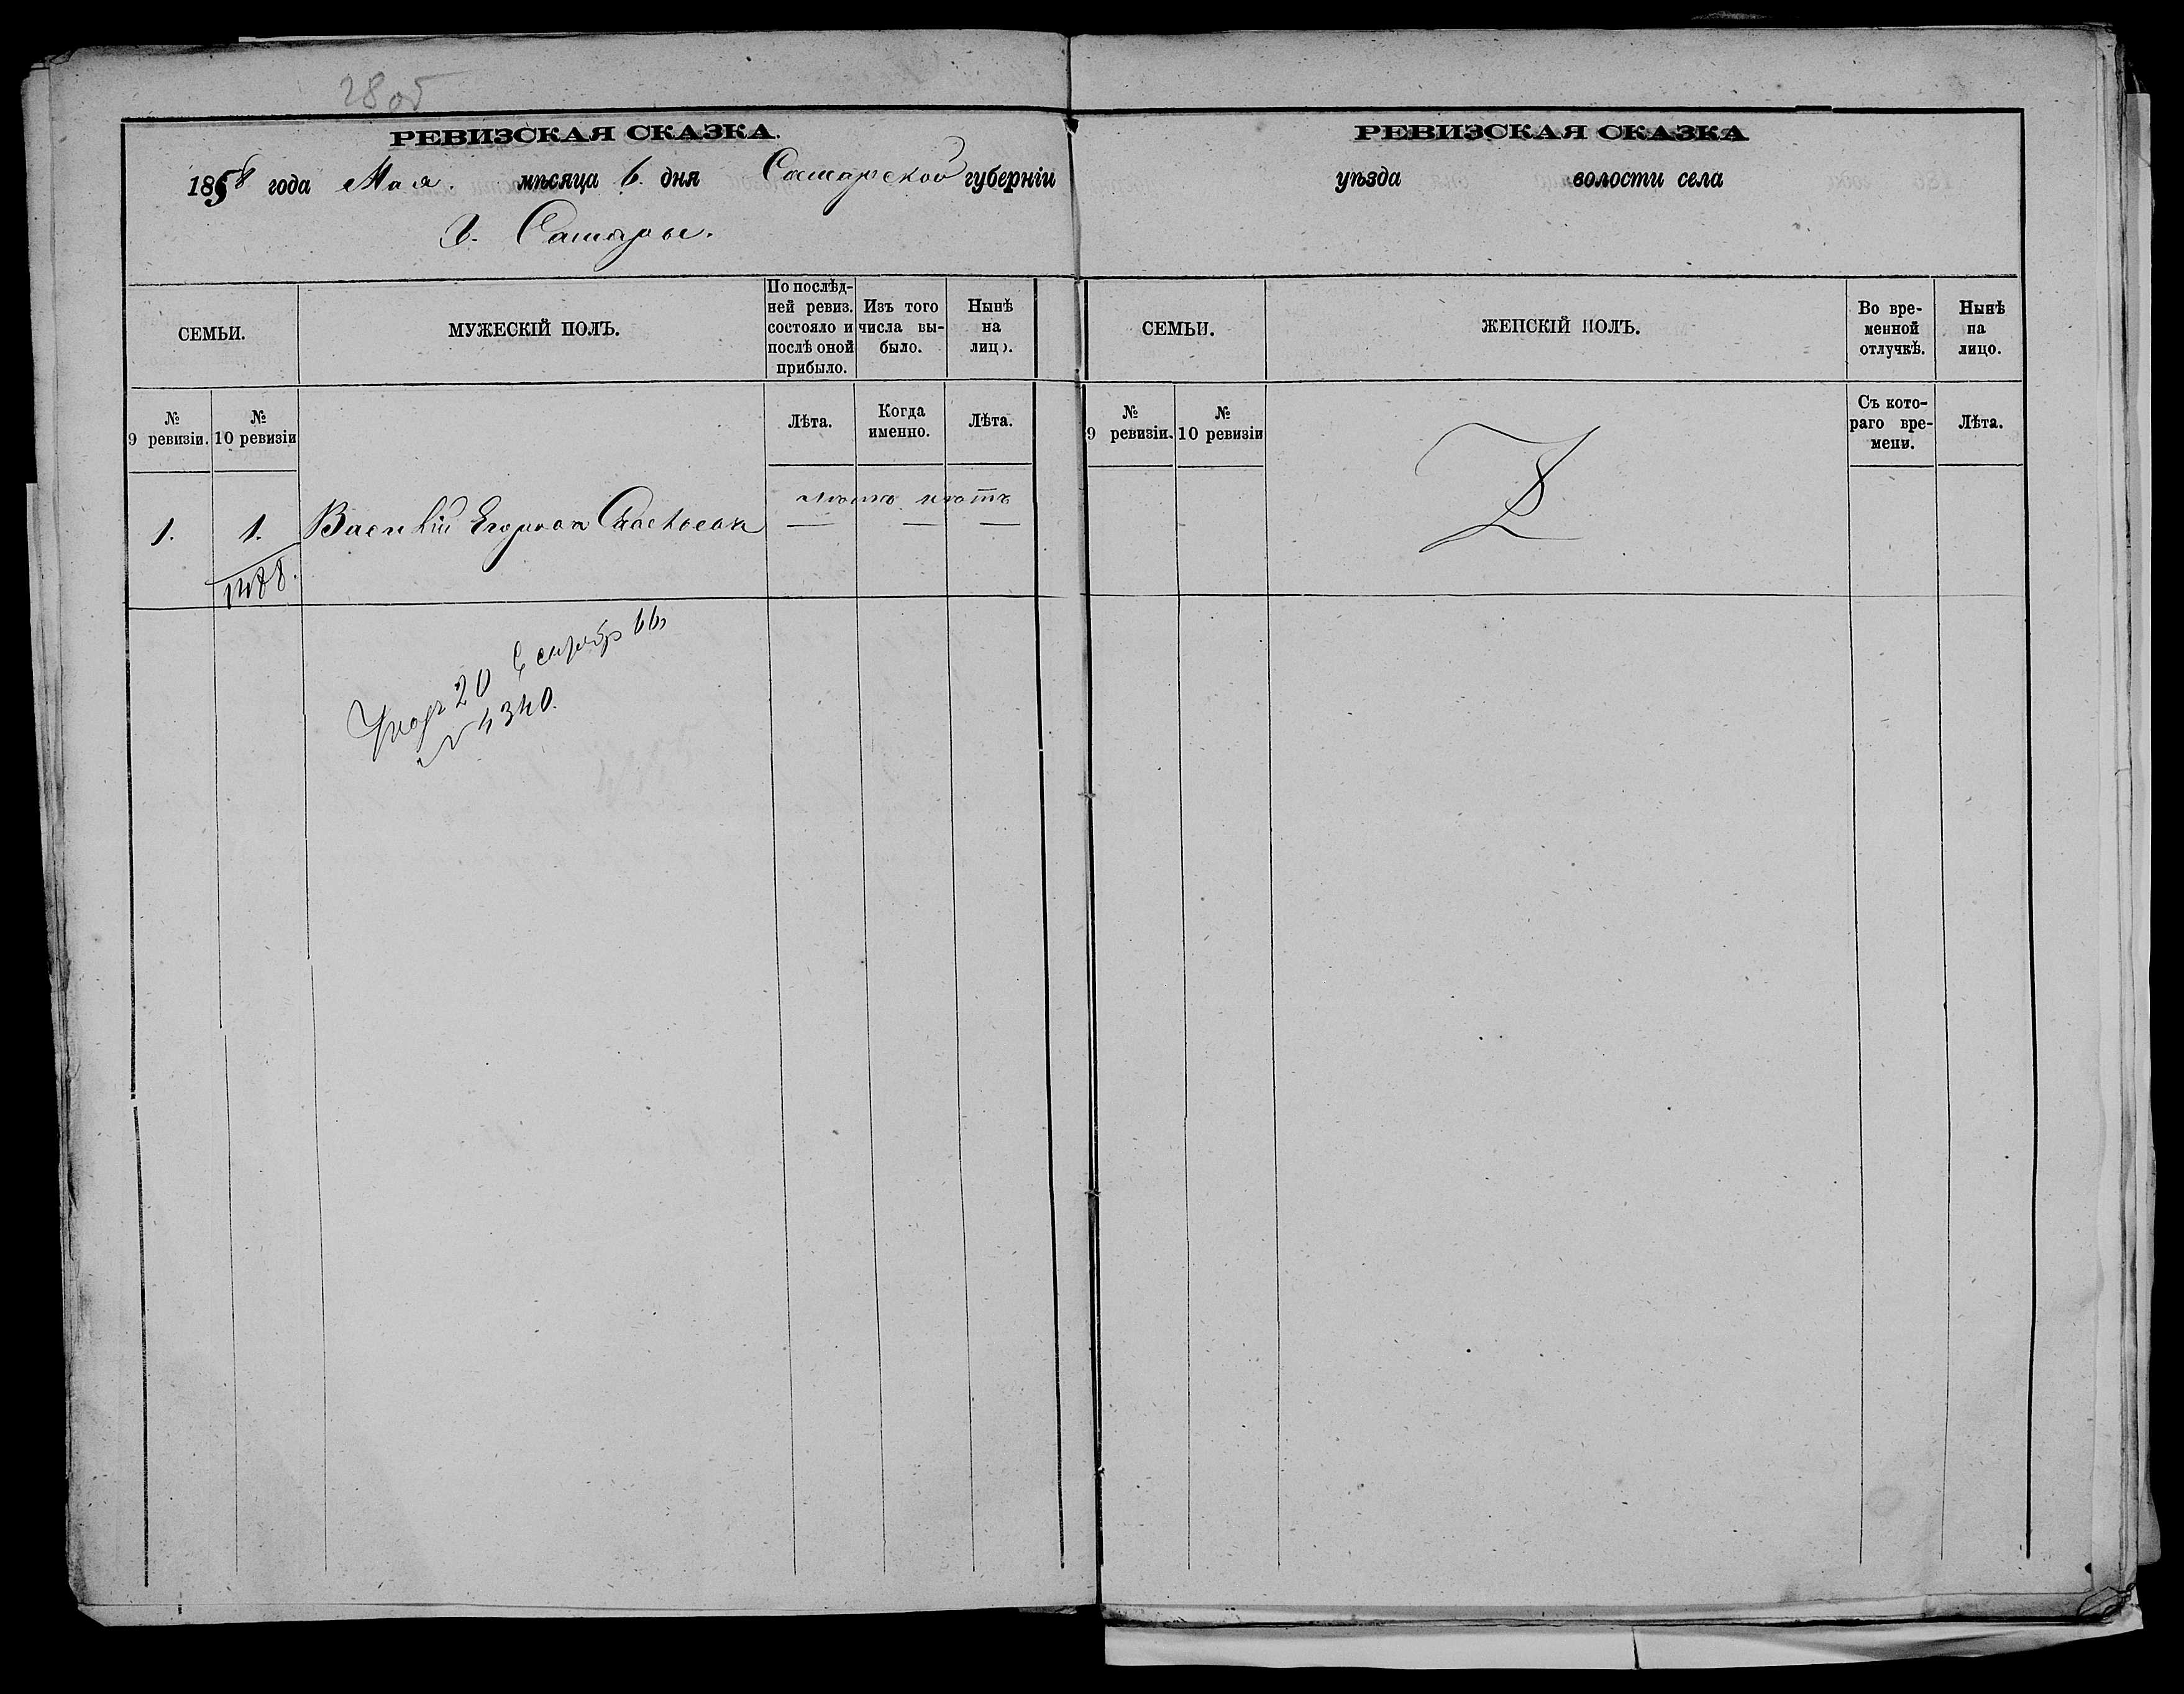 28 об
РЕВИЗСКАЯ СКАЗКА.
1858 года Мая. мѣсяца 6. дня Самарской губерніи
Г. Самары.
СЕМЬИ.
МУЖЕСКІЙ ПОЛЪ.
По послѣд-
ней ревиз.
состояло и
послѣ оной
прибыло.
Изъ того
числа вы-
было.
Нынѣ
на
лицо.
№
9 ревизіи.
№
10 ревизіи
Лѣта.
Когда
именно.
Лѣта.
1.
1.
Василій Егоровъ
лѣтъ нѣтъ
— — —
20 66
№ 4340.
РЕВИЗСКАЯ СКАЗКА
уѣзда волости села
СЕМЬИ.
ЖЕНСКІЙ ПОЛЪ.
Во вре-
менной
отлучкѣ.
Нынѣ
на
лицо.
№
9 ревизіи.
№
10 ревизіи
Съ кото-
раго вре-
мени.
Лѣта.